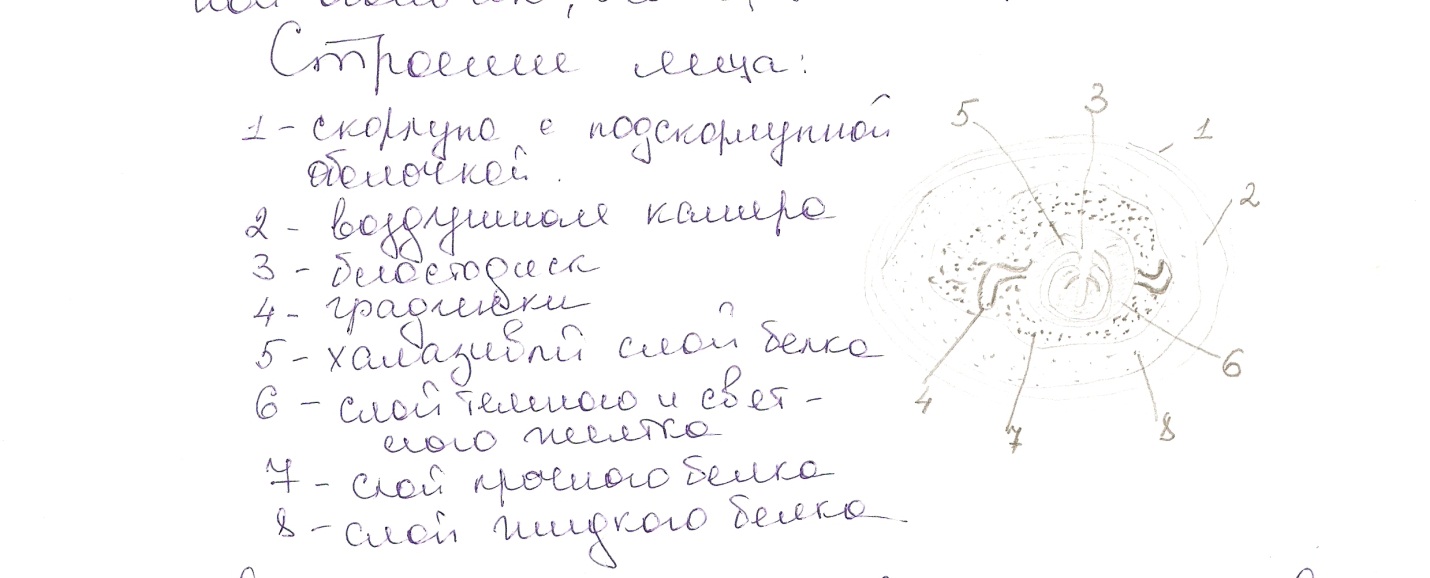 Строение яйца:
1 - скорлупа с подскорлупной
оболочкой.
2 - воздушная камера
3 - бластодиск
4 - градинки
5 - халазивый слой белка
6 - слой темного и свет-
лого желтка
7 - слой прочного белка
8 - слой жидкого белка.
5
3
1
2
6
4
7
8